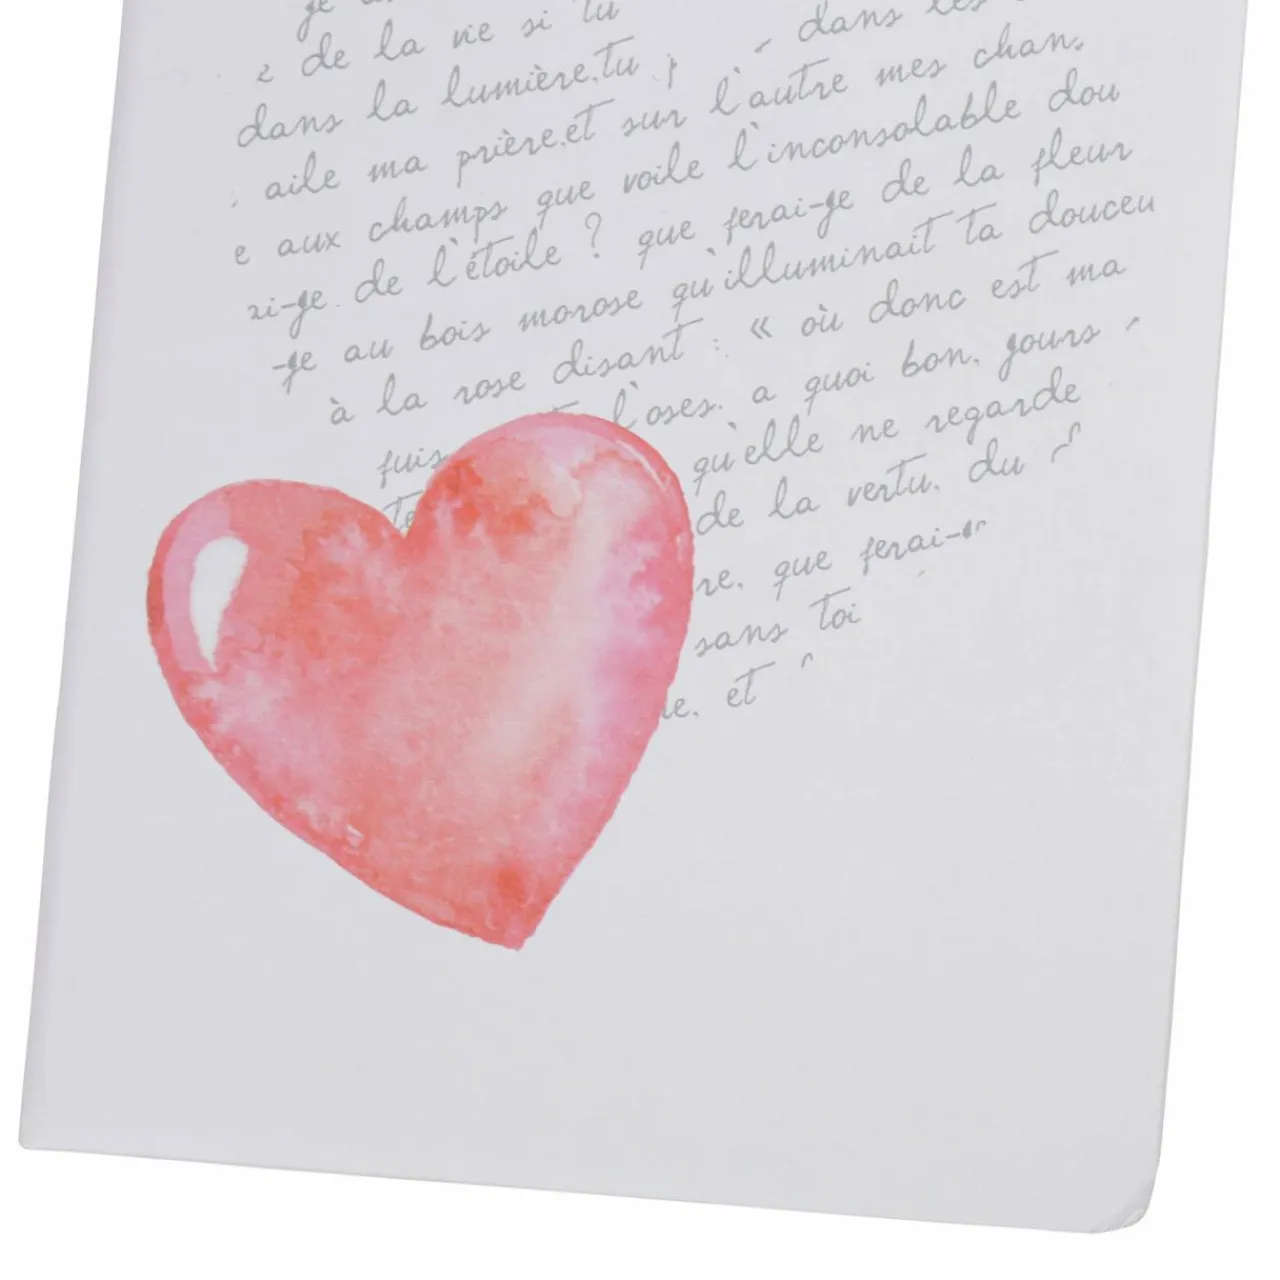 de la vie si tu
dans la lumière, tu
dans les
aile ma prière, et sur l'autre mes chan
e aux champs que voile l'inconsolable dou
ai-je de l'étoile ? que ferai-je de la fleur
-je au bois morose qu'illuminait ta douceu
à la rose disant : « où donc est ma
fuis l'oses. a quoi bon, jours
te qu'elle ne regarde
de la vertu, du
re, que ferai-
sans toi
e, et